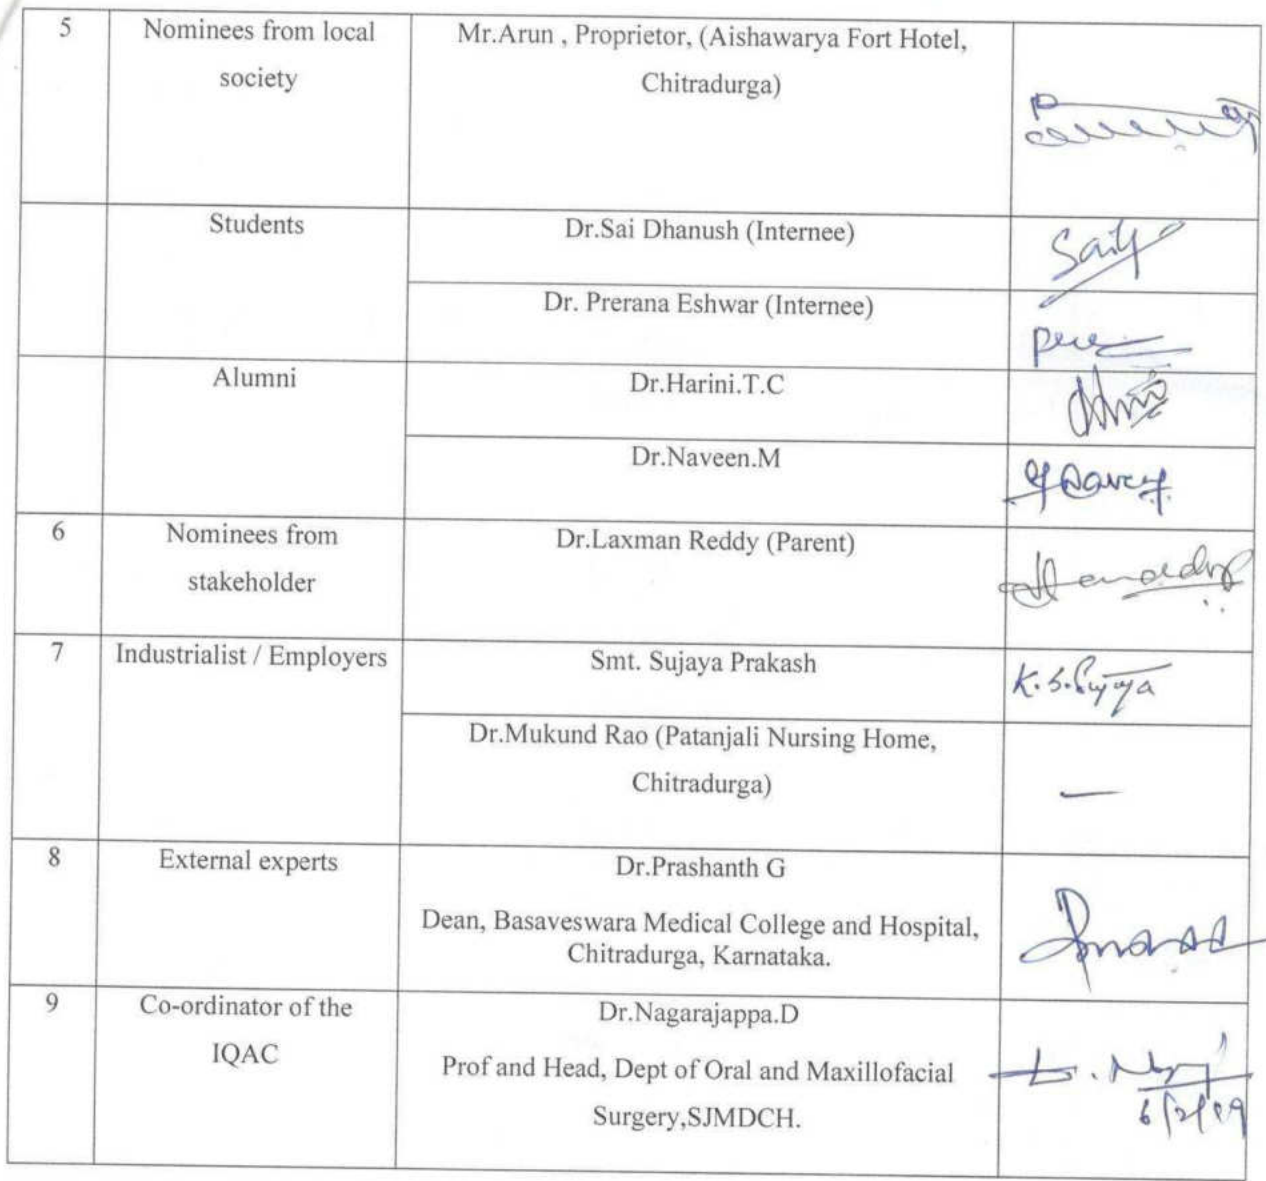 5
Nominees from local
society
Mr.Arun , Proprietor, (Aishawarya Fort Hotel,
Chitradurga)
Students
Dr.Sai Dhanush (Internee)
Dr. Prerana Eshwar (Internee)
Alumni
Dr.Harini.T.C
Dr.Naveen.M
6
Nominees from
stakeholder
Dr.Laxman Reddy (Parent)
7
Industrialist / Employers
Smt. Sujaya Prakash
K.S.Sujaya
Dr.Mukund Rao (Patanjali Nursing Home,
Chitradurga)
—
8
External experts
Dr.Prashanth G
Dean, Basaveswara Medical College and Hospital,
Chitradurga, Karnataka.
9
Co-ordinator of the
IQAC
Dr.Nagarajappa.D
Prof and Head, Dept of Oral and Maxillofacial
Surgery,SJMDCH.